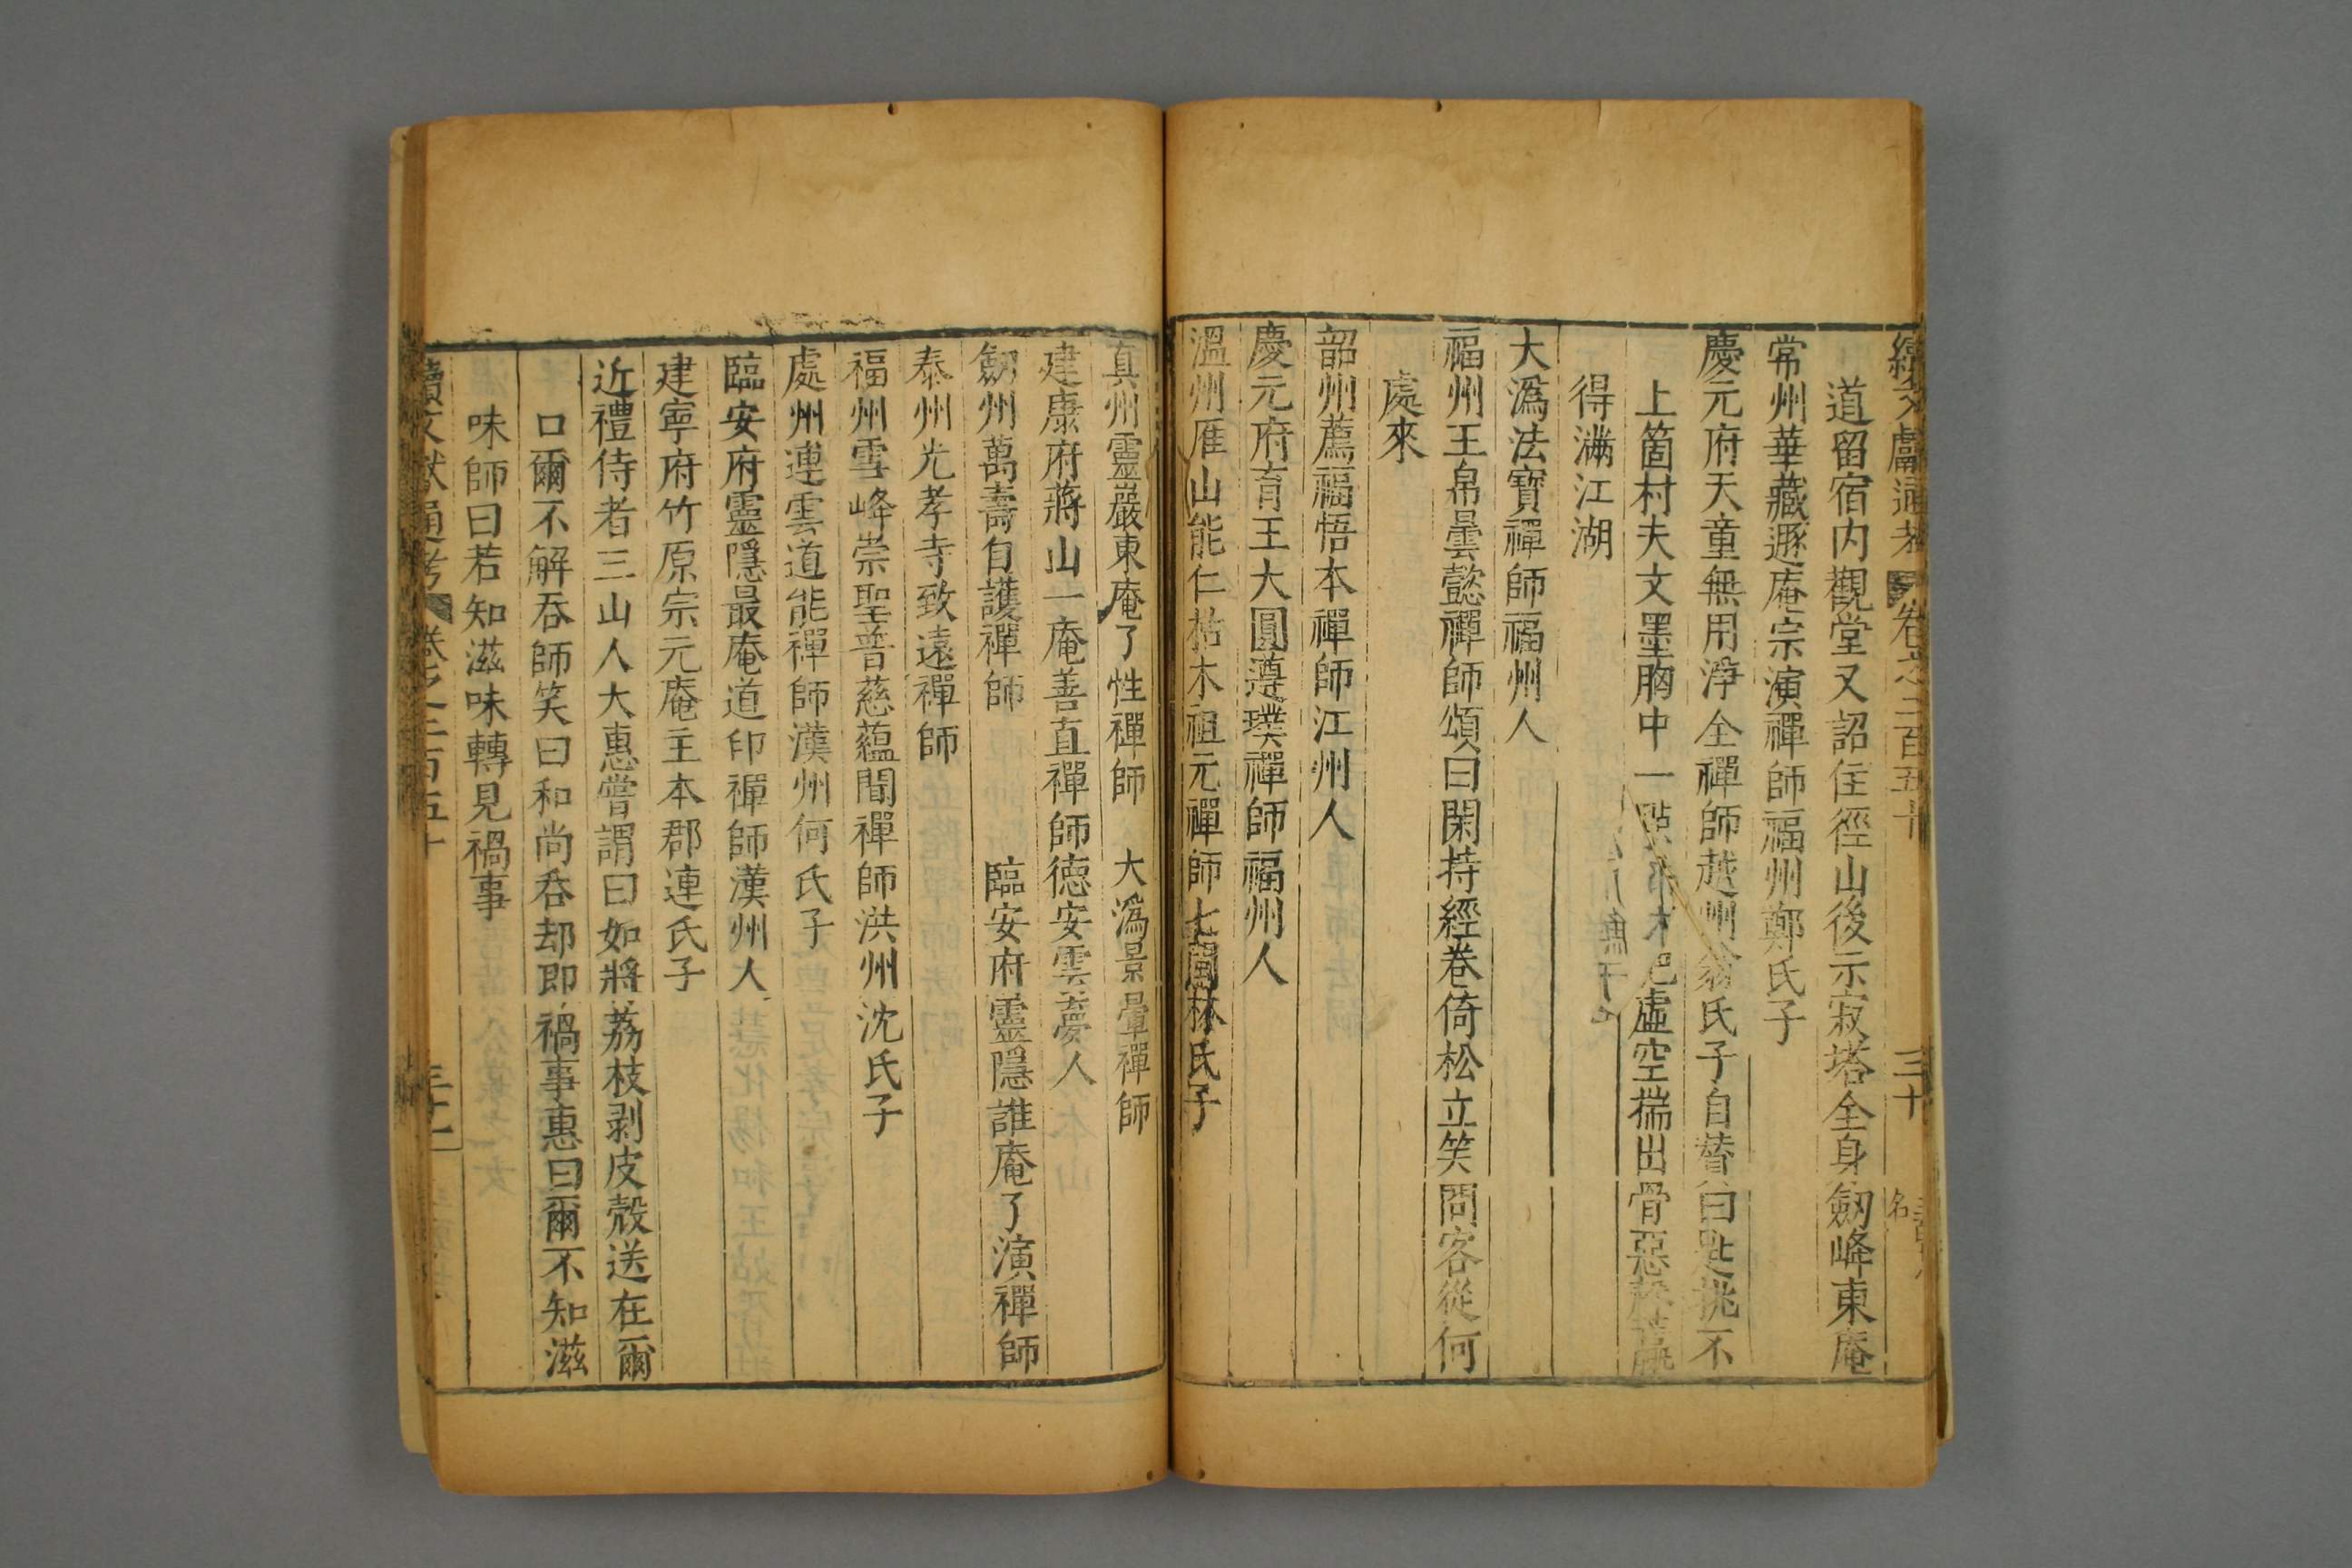 續文獻通考 卷之二百五十 三十
道留宿内觀堂又詔住徑山後示寂塔全身劒峰東庵
常州華藏遯庵宗演禪師福州鄭氏子
慶元府天童無用淨全禪師越州翁氏子自贊曰匙挑不
上箇村夫文墨胸中一點 虛空揣出骨惡
得滿江湖
大溈法寶禪師福州人
福州王帛曇懿禪師頌曰閑持經卷倚松立笑問客從何
處來
韶州薦福悟本禪師江州人
慶元府育王大圓遵璞禪師福州人
溫州雁山能仁枯木祖元禪師七閩林氏子
真州靈嚴東庵了性禪師 大溈景暈禪師
建康府蔣山一庵善直禪師德安雲夢人
劒州萬壽自護禪師 臨安府靈隱誰庵了演禪師
泰州光孝寺致遠禪師
福州雪峰崇聖普慈蘊聞禪師洪州沈氏子
處州連雲道能禪師漢州何氏子
臨安府靈隱最庵道印禪師漢州人
建寧府竹原宗元庵主本郡連氏子
近禮侍者三山人大惠嘗謂曰如將荔枝剥皮殼送在爾
口爾不解吞師笑曰和尚吞却即禍事惠曰爾不知滋
味師曰若知滋味轉見禍事
續文獻通考 卷之二百五十 三十一